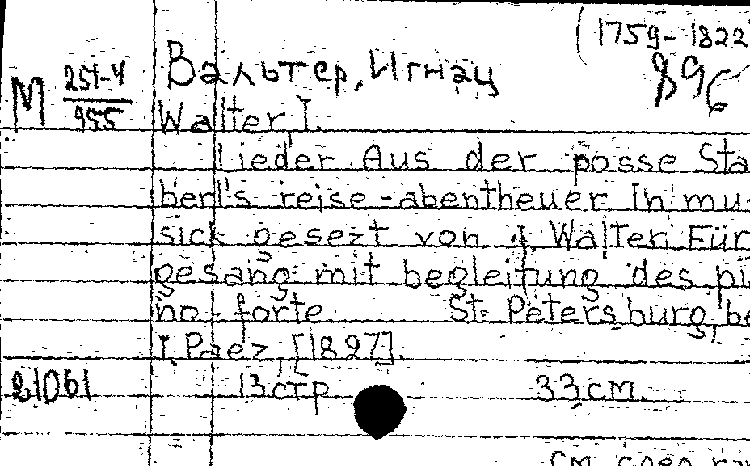 (1759-1822
М 251-4/955 Вальтер, Игнац 896
Walter, I.
Lieder Aus der posse Sta
berl's reise-abentheuer In mu-
sick gesezt von J. Walter. Für
gesang mit begleitung des pi
no-forte St. Petersburg, be
I. Paez, [1827].
81061 13 стр 33 см.
см. соео